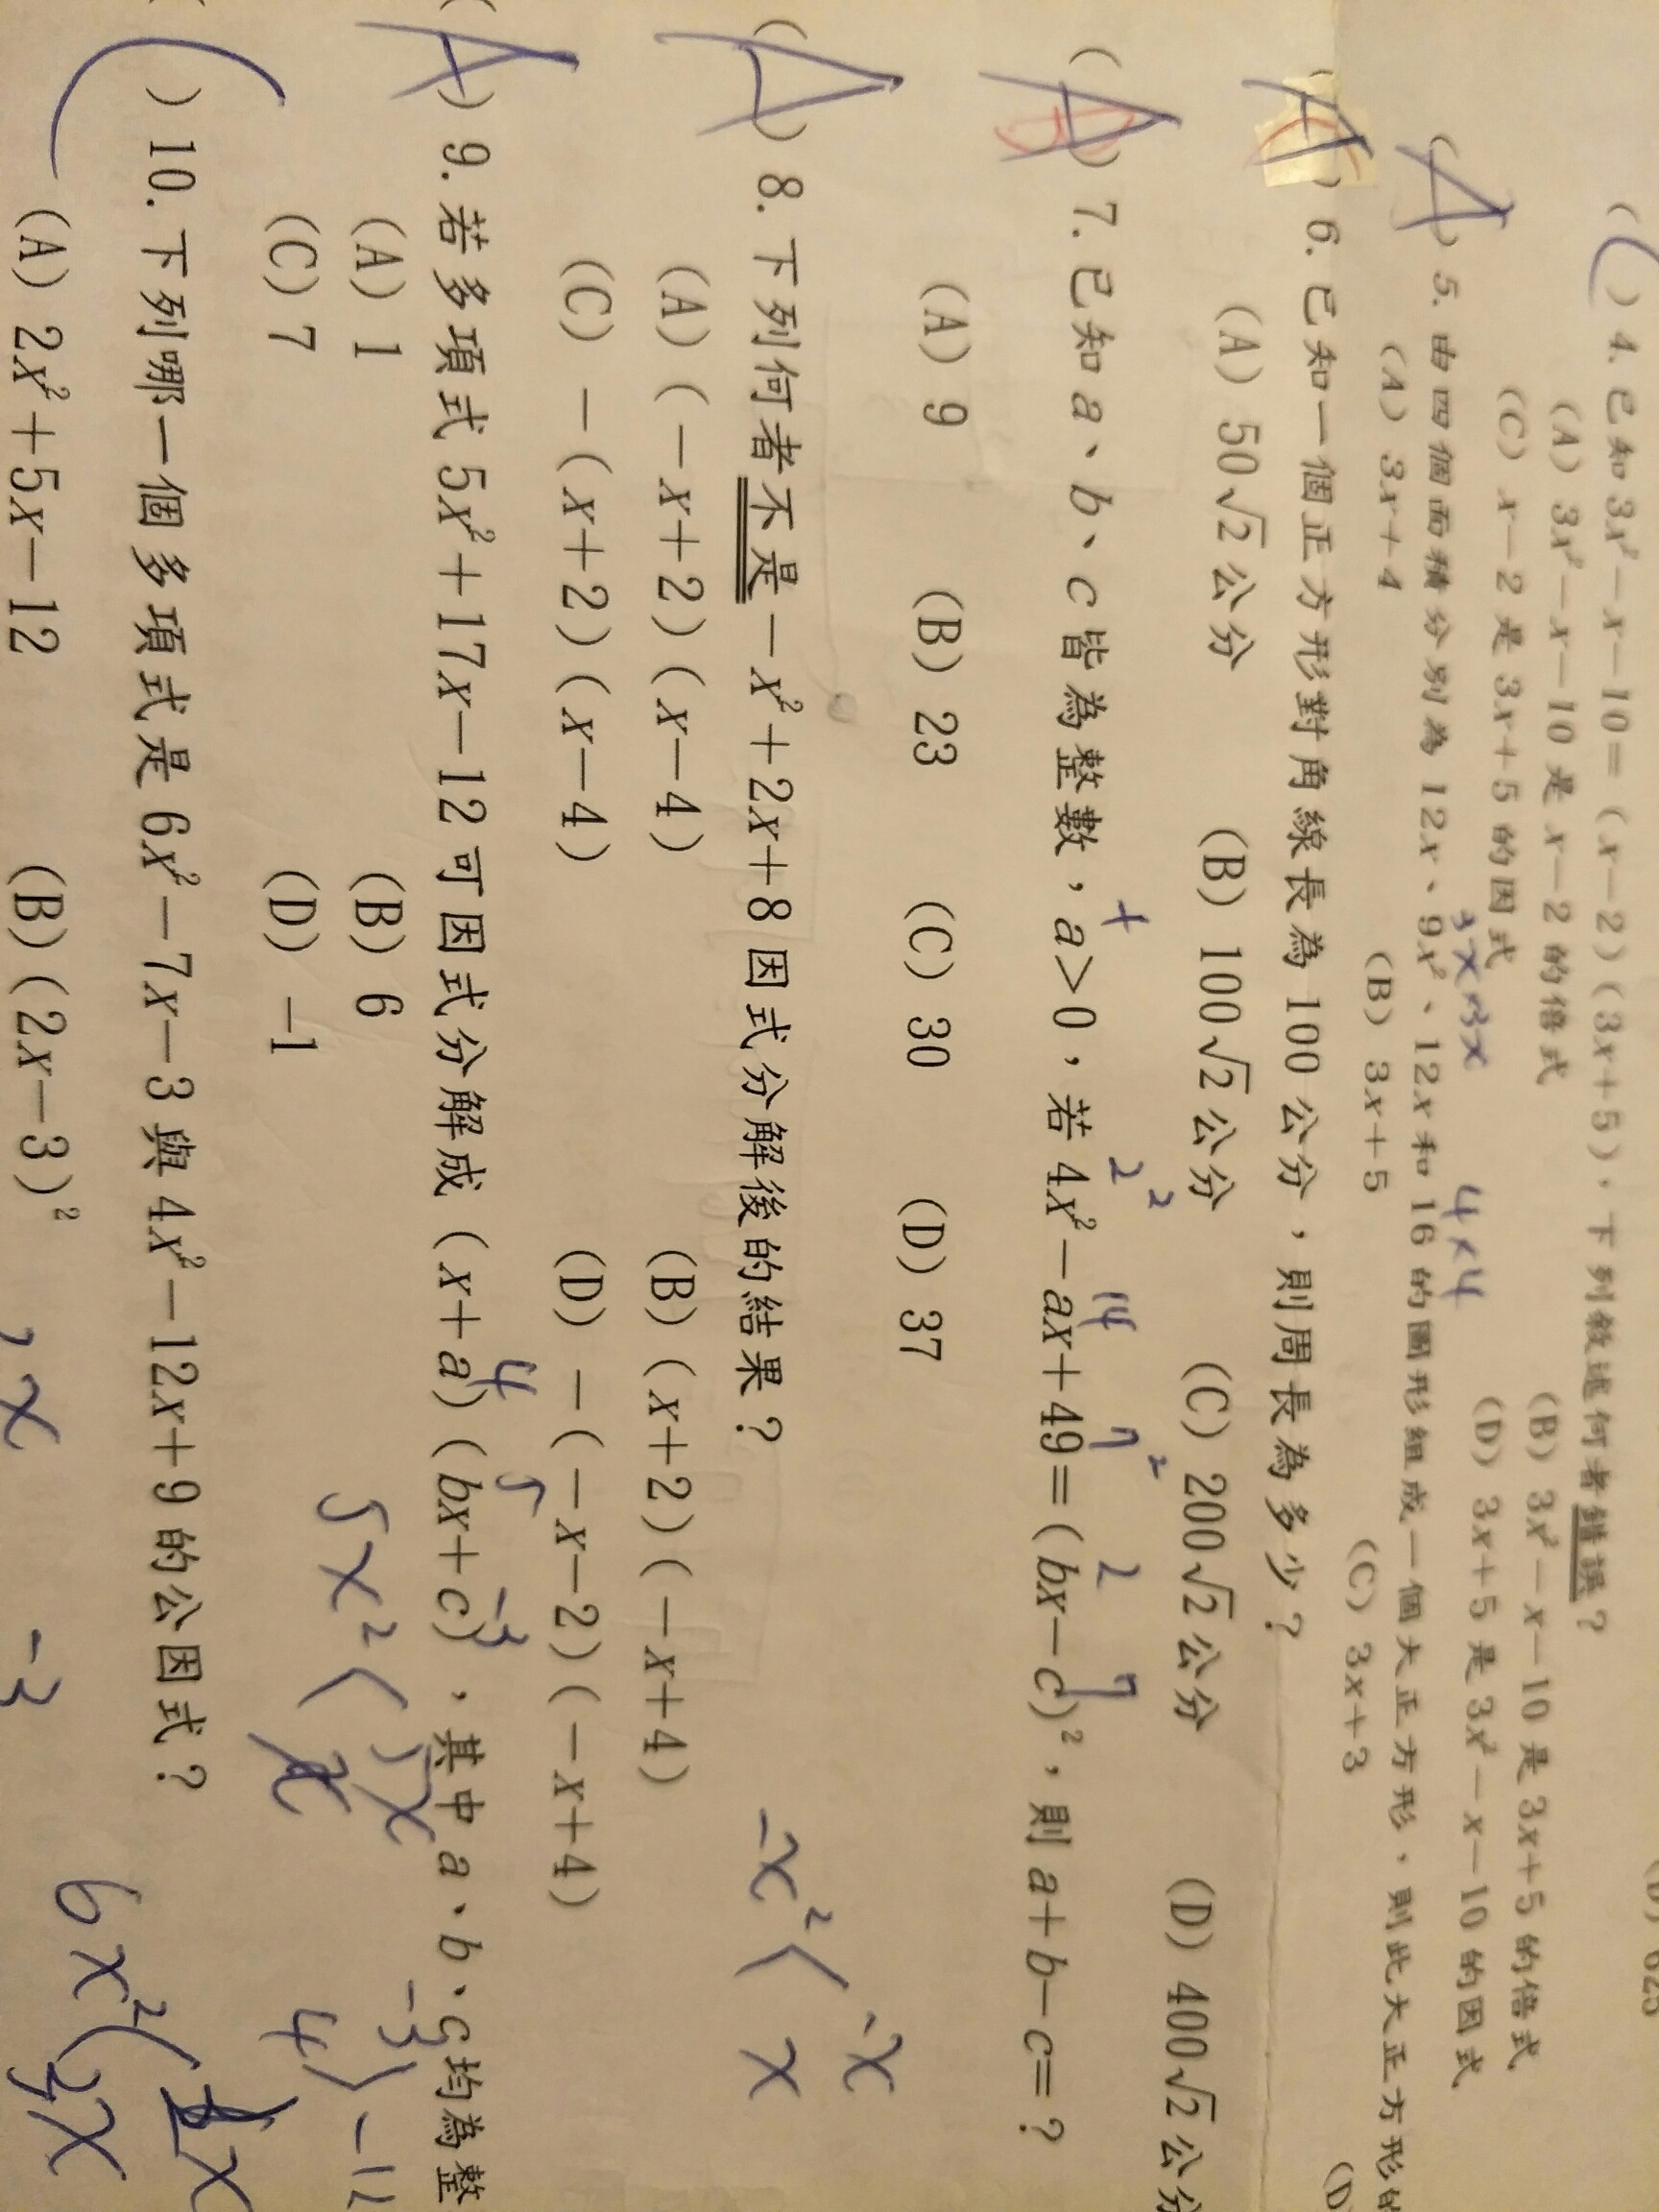 (D) 625
( ) 4. 已知 3x²-x-10=(x-2)(3x+5),下列敘述何者錯誤?
(A) 3x²-x-10 是 x-2 的倍式 (B) 3x²-x-10 是 3x+5 的倍式
(C) x-2 是 3x+5 的因式 (D) 3x+5 是 3x²-x-10 的因式
3x×3x 4×4
(A) 5. 由四個面積分別為 12x、9x²、12x 和 16 的圖形組成一個大正方形,則此大正方形的
(A) 3x+4 (B) 3x+5 (C) 3x+3 (D)
(A) 6. 已知一個正方形對角線長為 100 公分,則周長為多少?
(A) 50√2 公分 (B) 100√2 公分 (C) 200√2 公分 (D) 400√2 公分
+ 2 2 14 7 2 2 7
(A) 7. 已知 a、b、c 皆為整數,a>0,若 4x²-ax+49=(bx-c)²,則 a+b-c=?
(A) 9 (B) 23 (C) 30 (D) 37
-x
(A) 8. 下列何者不是-x²+2x+8 因式分解後的結果? -x² x
(A) (-x+2)(x-4) (B) (x+2)(-x+4)
(C) -(x+2)(x-4) (D) -(-x-2)(-x+4)
4 5 -3
(A) 9. 若多項式 5x²+17x-12 可因式分解成 (x+a)(bx+c),其中 a、b、c 均為整
(A) 1 (B) 6 5x² 5x -3 -12
(C) 7 (D) -1 x 4
( ) 10. 下列哪一個多項式是 6x²-7x-3 與 4x²-12x+9 的公因式?
(A) 2x²+5x-12 (B) (2x-3)² x -3 6x² x